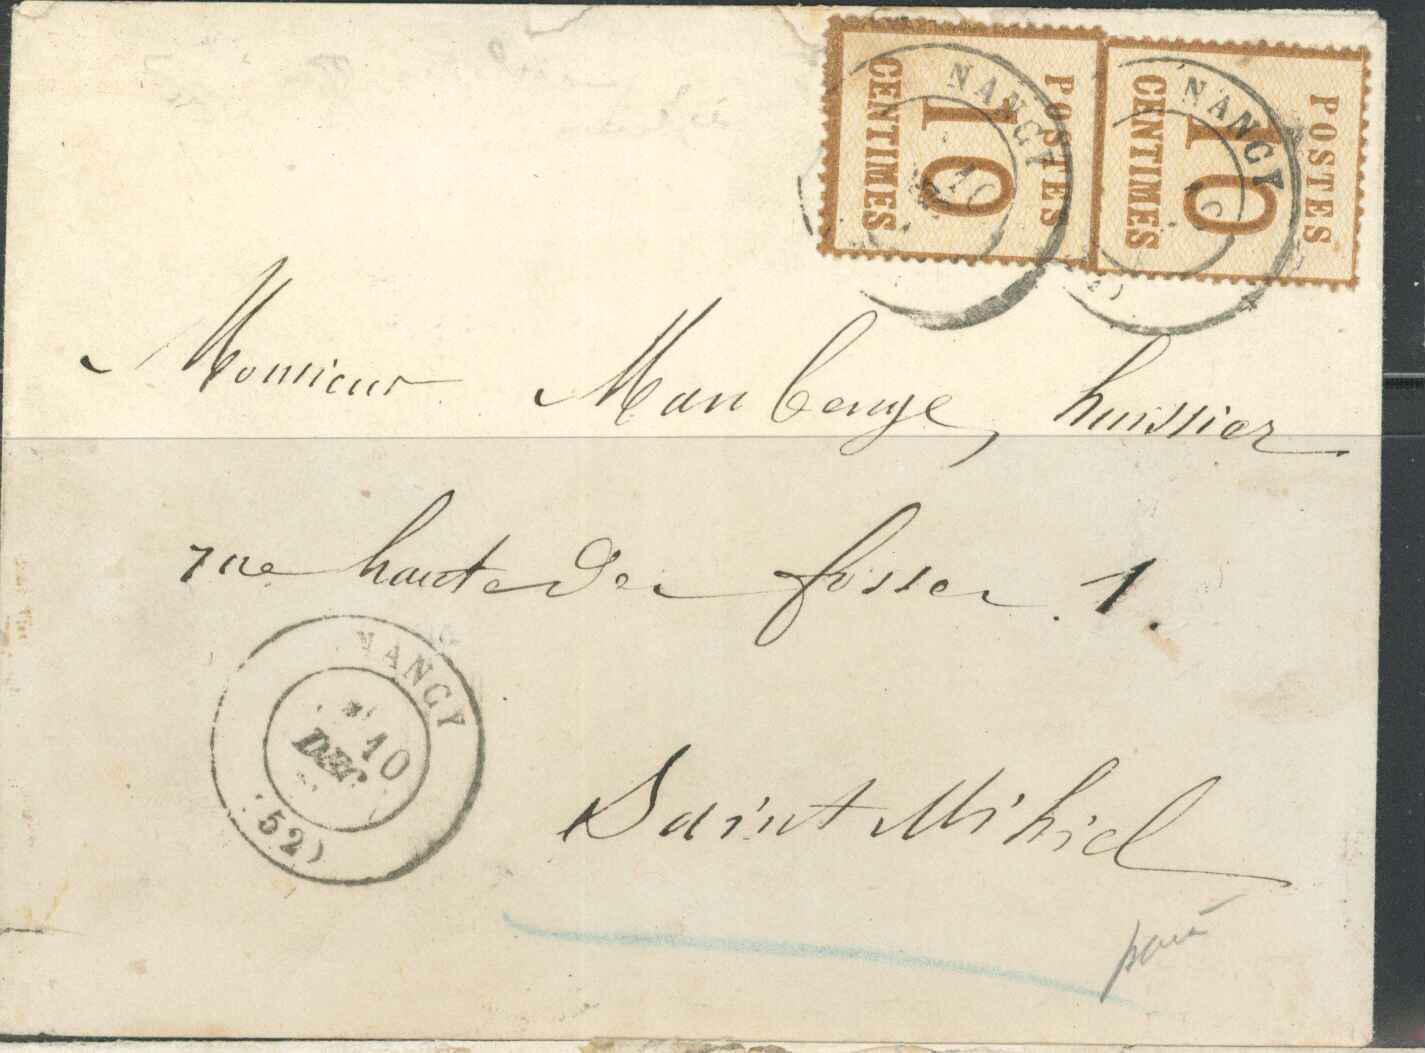 POSTES
10
CENTIMES
POSTES
10
CENTIMES
NANCY
10
NANCY
10
Monsieur Maubeuge, huissier
rue haute des fosses 1.
NANCY
10
DEC
(52)
Saint Mihiel